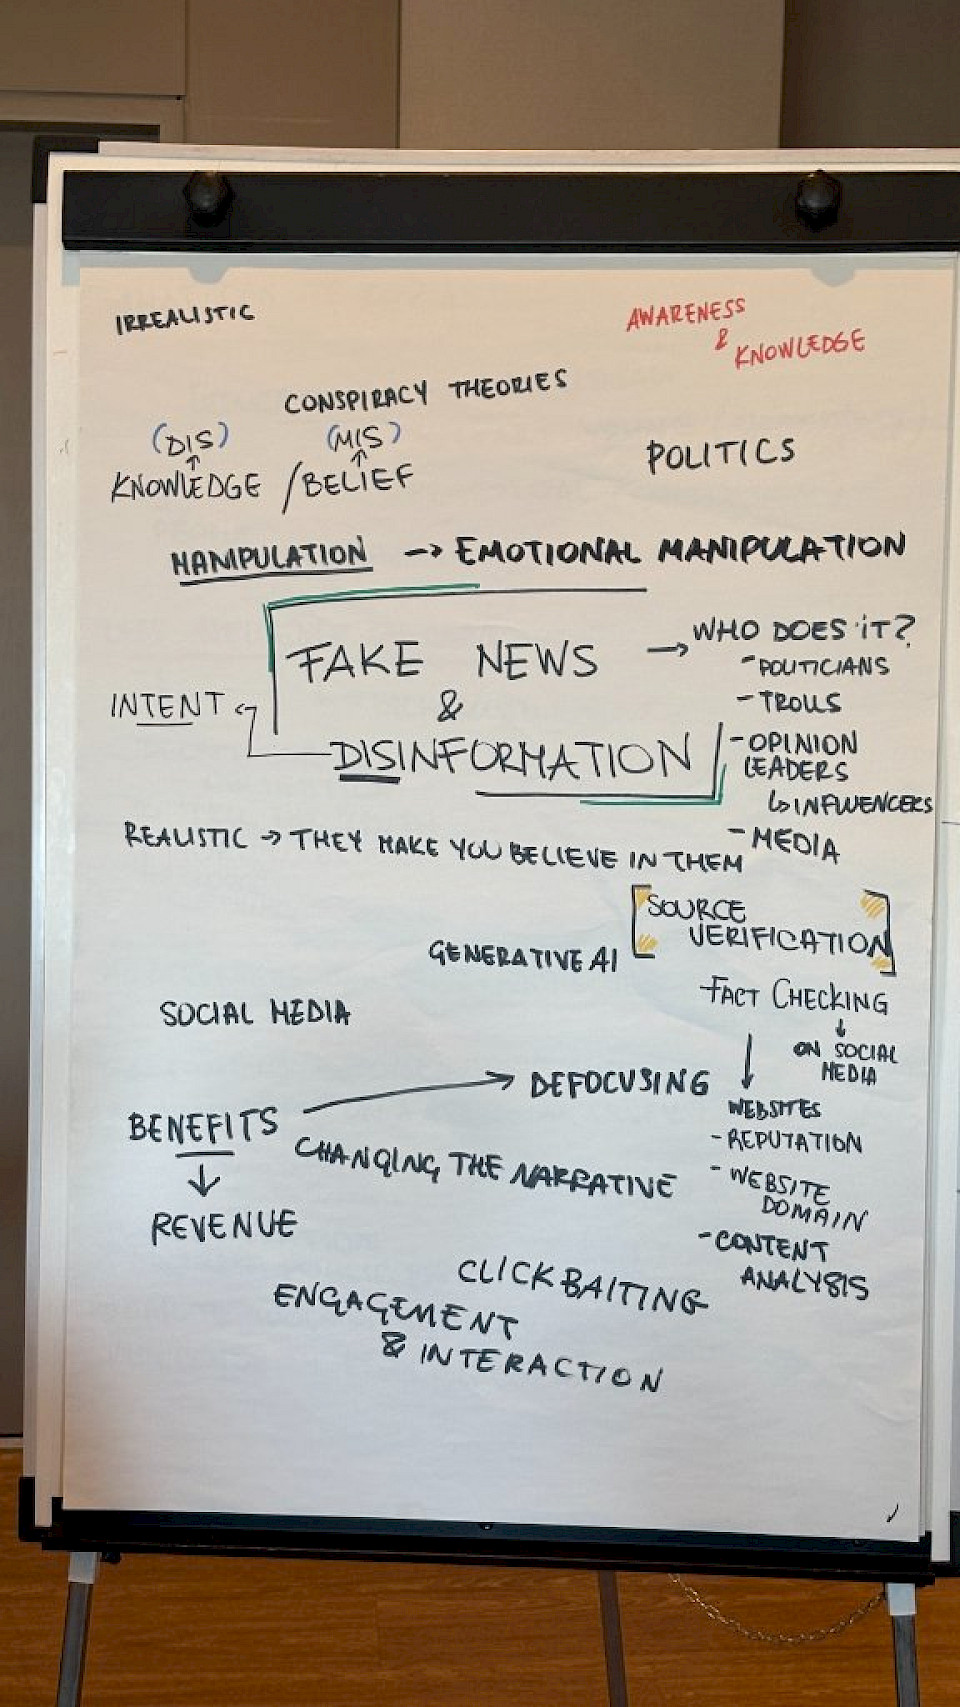 IRREALISTIC
AWARENESS
& KNOWLEDGE
CONSPIRACY THEORIES
(DIS) (MIS)
KNOWLEDGE / BELIEF
POLITICS
MANIPULATION → EMOTIONAL MANIPULATION
FAKE NEWS
&
DISINFORMATION
INTENT
→ WHO DOES IT?
- POLITICIANS
- TROLLS
- OPINION
LEADERS
↳ INFLUENCERS
- MEDIA
REALISTIC → THEY MAKE YOU BELIEVE IN THEM
SOURCE
VERIFICATION
GENERATIVE AI
FACT CHECKING
↓
ON SOCIAL
MEDIA
SOCIAL MEDIA
↓
WEBSITES
- REPUTATION
- WEBSITE
DOMAIN
- CONTENT
ANALYSIS
BENEFITS → DEFOCUSING
↓
REVENUE
CHANGING THE NARRATIVE
CLICKBAITING
ENGAGEMENT
& INTERACTION